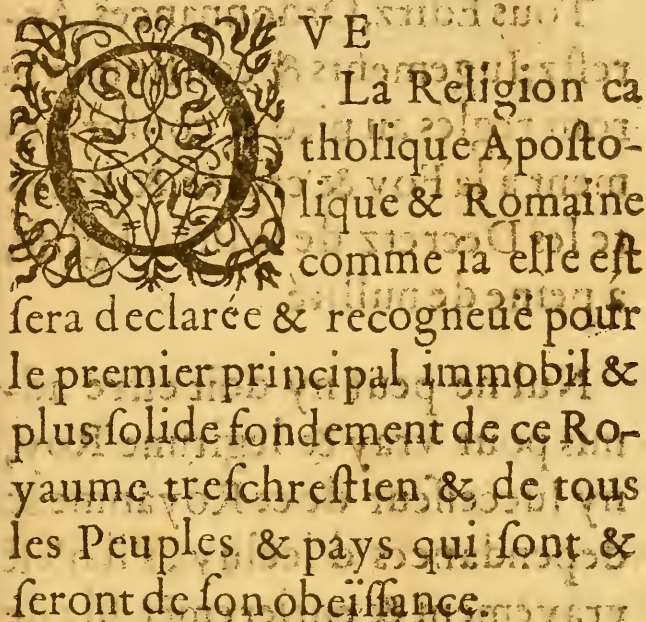 QVE
La Religion ca
tholique Aposto-
lique & Romaine
comme ia elle est
sera declarée & recogneuë pour
le premier principal immobil &
plus solide fondement de ce Ro-
yaume treschrestien & de tous
les Peuples & pays qui sont &
seront de son obeïssance.